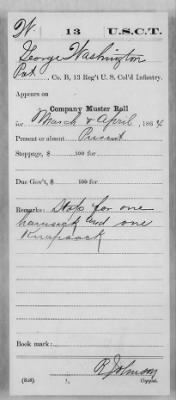 W. 13 U.S.C.T.
George Washington
Pvt, Co. B, 13 Reg't U. S. Col'd Infantry.
Appears on
Company Muster Roll
for March & April, 1864
Present or absent Present
Stoppage, $ 100 for
Due Gov't, $ 100 for
Remarks: Stop for one
haversack and one
Knapsack
Book mark:
R Johnson
(358) Copyist.